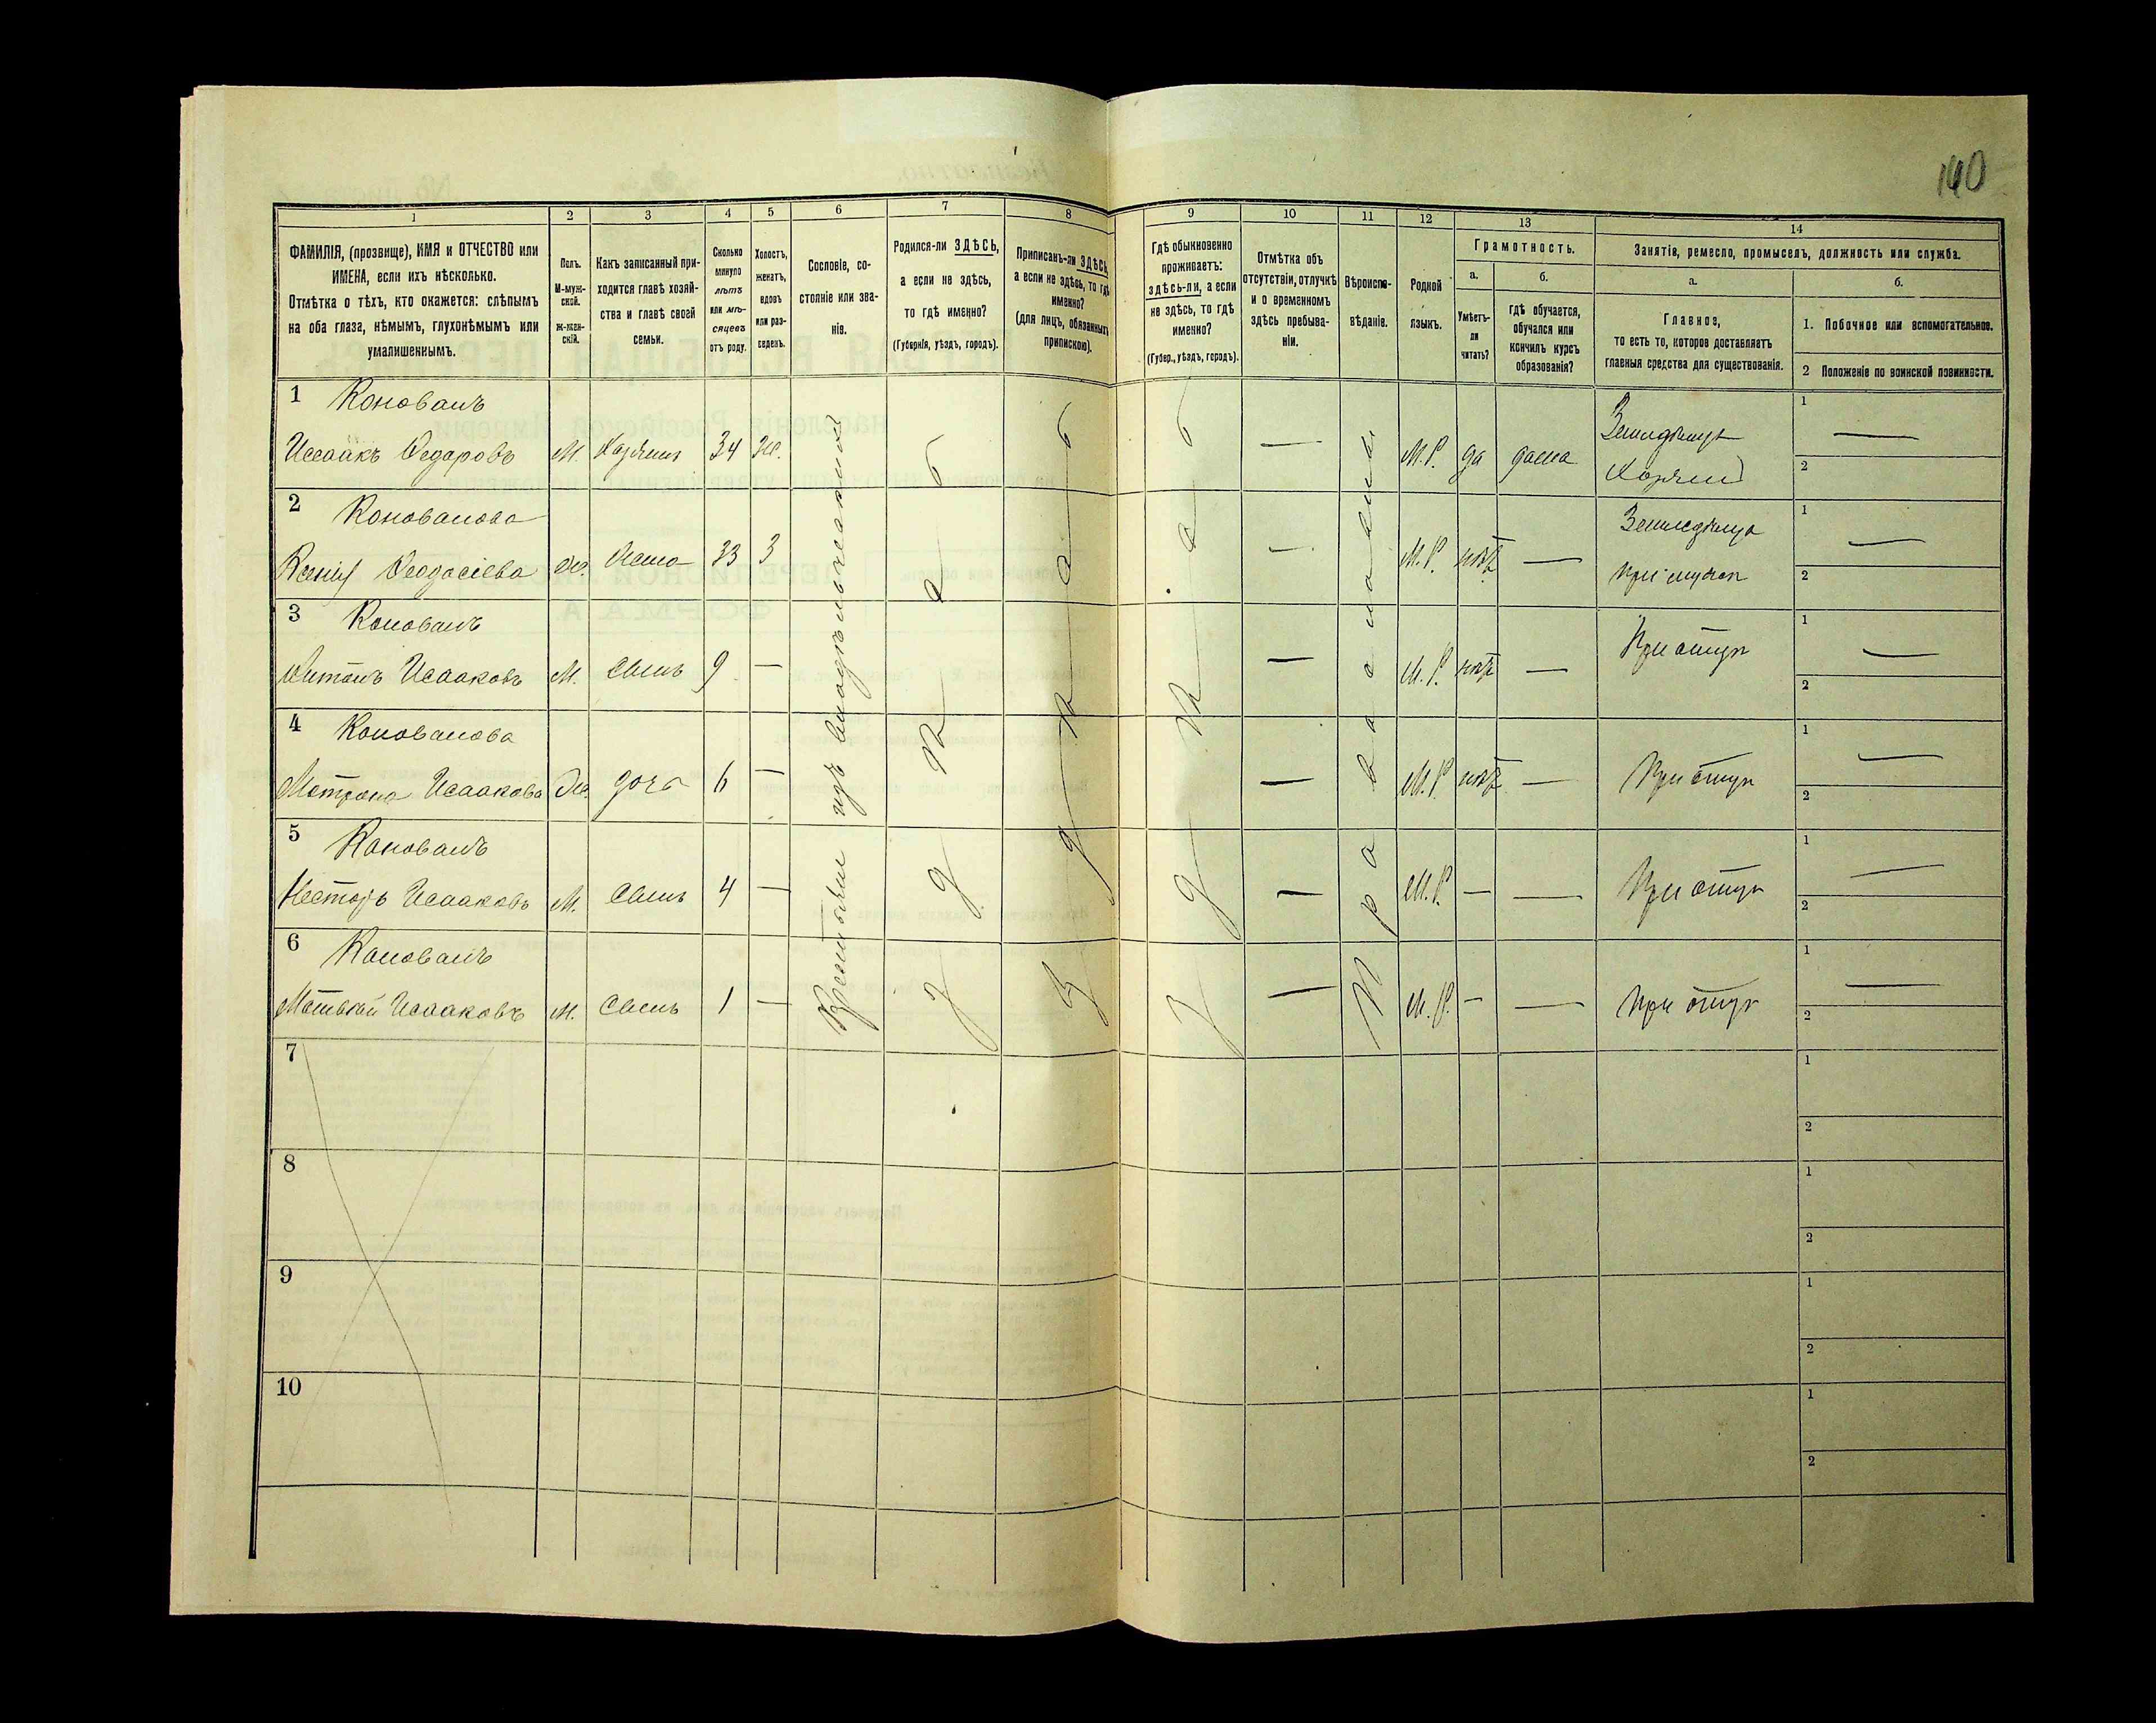 140
1
2
3
4
5
6
7
8
9
10
11
12
13
14
ФАМИЛІЯ, (прозвище), ИМЯ и ОТЧЕСТВО или
ИМЕНА, если ихъ нѣсколько.
Отмѣтка о тѣхъ, кто окажется: слѣпымъ
на оба глаза, нѣмымъ, глухонѣмымъ или
умалишеннымъ.
Полъ.
М-муж-
ской.
Ж-жен-
скій.
Какъ записанный при-
ходится главѣ хозяй-
ства и главѣ своей
семьи.
Сколько
минуло
лѣтъ
или мѣ-
сяцевъ
отъ роду.
Холостъ,
женатъ,
вдовъ
или раз-
веденъ.
Сословіе, со-
стояніе или зва-
ніе.
Родился-ли ЗДѢСЬ,
а если не здѣсь,
то гдѣ именно?
(Губернія, уѣздъ, городъ).
Приписанъ-ли ЗДѢСЬ,
а если не здѣсь, то гдѣ
именно?
(для лицъ, обязанныхъ
припискою).
Гдѣ обыкновенно
проживаетъ:
ЗДѢСЬ-ЛИ, а если
не здѣсь, то гдѣ
именно?
(Губер., уѣздъ, городъ).
Отмѣтка объ
отсутствіи, отлучкѣ
и о временномъ
здѣсь пребыва-
ніи.
Вѣроиспо-
вѣданіе.
Родной
языкъ.
Грамотность.
а.
б.
Умѣетъ-
ли
читать?
гдѣ обучается,
обучался или
кончилъ курсъ
образованія?
Занятіе, ремесло, промыселъ, должность или служба.
а.
б.
Главное,
то есть то, которое доставляетъ
главныя средства для существованія.
1. Побочное или вспомогательное.
2 Положеніе по воинской повинности.
1 Коновалъ
Исаакъ Федоровъ М. Хозяинъ 34 Же. — М.Р. да дома
Хозяин
1 —
2
2 Коновалова
Ксенія Феодосіева Ж. Жена 33 З — М.Р. нѣтъ —
1 —
2
3 Коновалъ
Антонъ Исааковъ М. Сынъ 9 — — М.Р. нѣтъ —
При отцѣ
1 —
2
4 Коновалова
Матрона Исаакова Ж. дочь 6 — — М.Р. нѣтъ —
При отцѣ
1 —
2
5 Коновалъ
Несторъ Исааковъ М. Сынъ 4 — — М.Р. — —
При отцѣ
1 —
2
6 Коновалъ
Матвѣй Исааковъ М. Сынъ 1 — — М.Р. — —
При отцѣ
1 —
2
Крестьяне изъ владѣльческихъ
Здѣсь
Здѣсь
Здѣсь
Православная
7
1
2
8
1
2
9
1
2
10
1
2